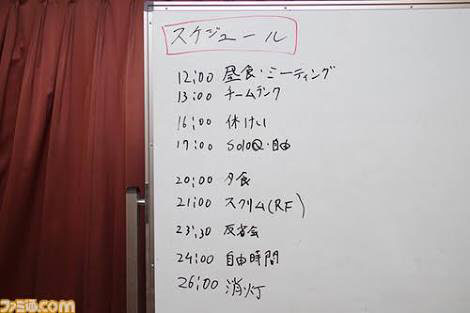 スケジュール
12:00 昼食・ミーティング
13:00 チームランク
16:00 休けい
17:00 SoloQ・自由
20:00 夕食
21:00 スクリム(RF)
23:30 反省会
24:00 自由時間
26:00 消灯
ファミ通.com